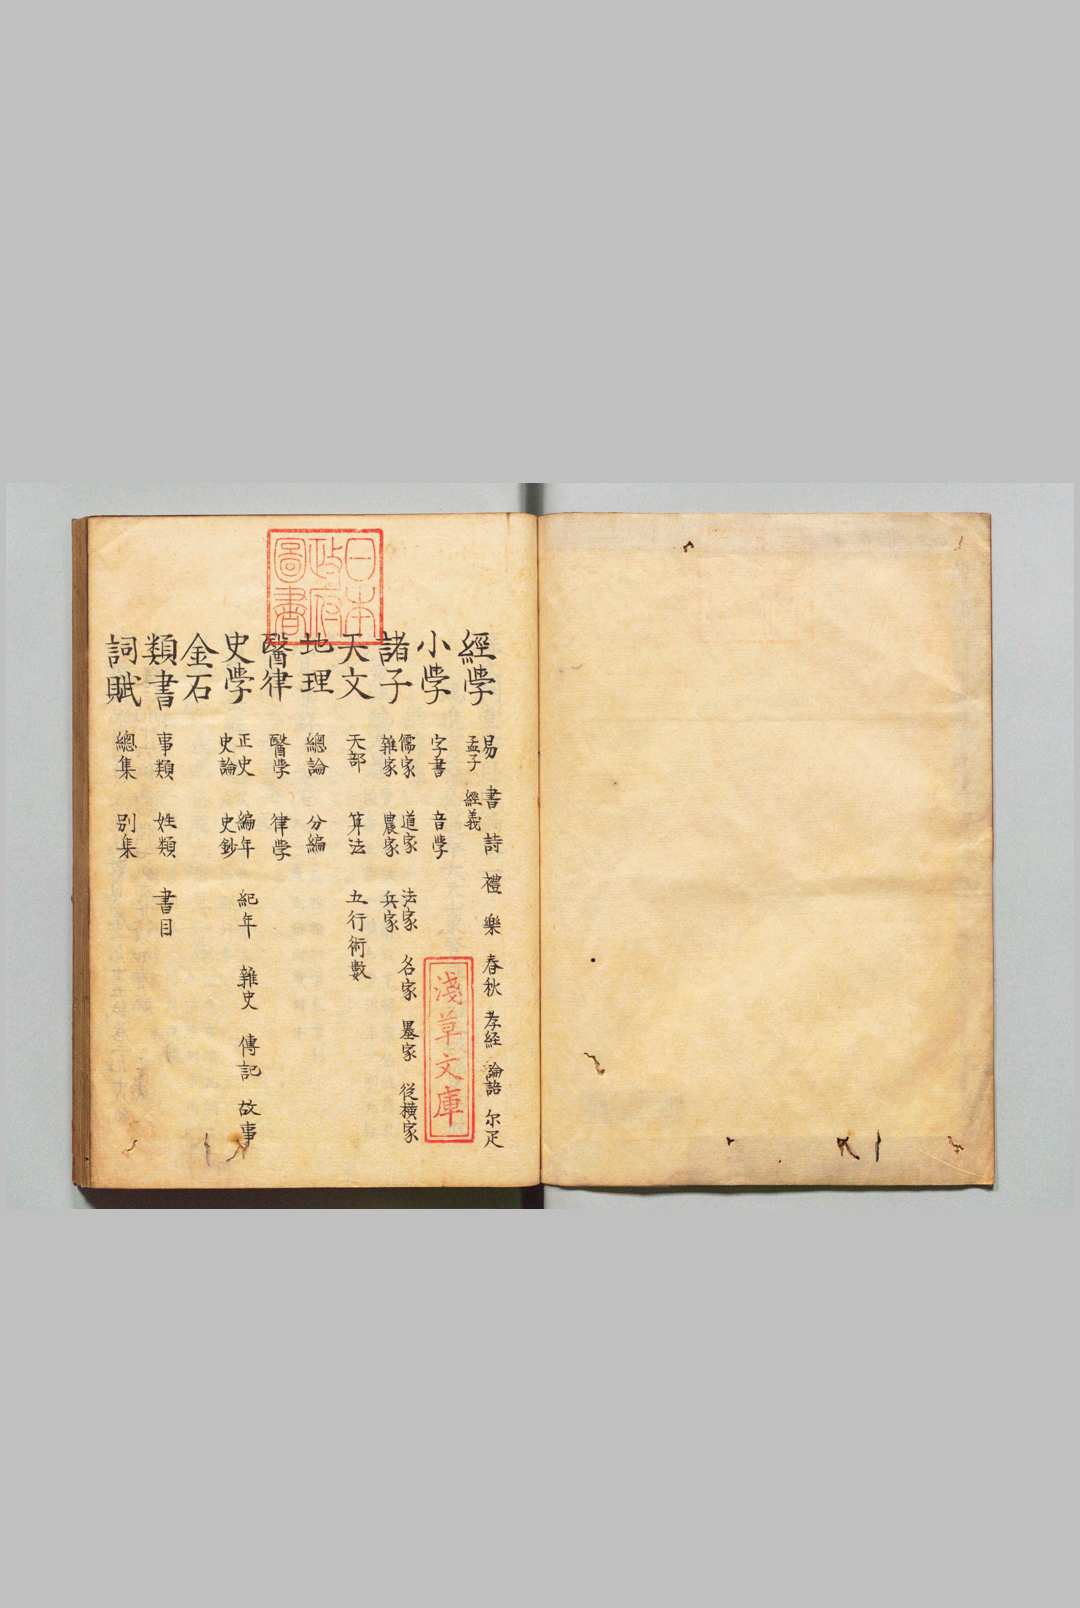 日本
政府
圖書
經學 易 書 詩 禮 樂 春秋 孝経 論語 尓疋
孟子 經義
小學 字書 音學
淺草文庫
諸子 儒家 道家 法家 名家 墨家 従横家
雜家 農家 兵家
天文 天部 算法 五行術數
地理 總論 分編
醫律 醫學 律學
史學 正史 編年 紀年 雜史 傳記 故事
史論 史鈔
金石
類書 事類 姓類 書目
詞賦 總集 別集